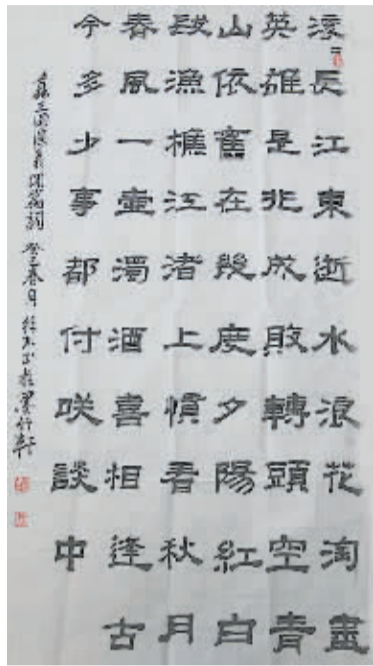 滾〻長江東逝水浪花淘盡
英雄是非成敗轉頭空青
山依舊在幾度夕陽紅白
髮漁樵江渚上慣看秋月
春風一壺濁酒喜相逢古
今多少事都付咲談中
右錄三國演義開篇詞 癸巳春月